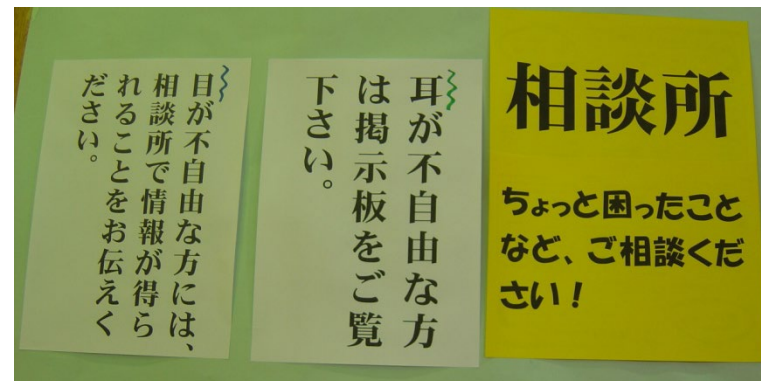 相談所
ちょっと困ったこと
など、ご相談くだ
さい！
耳が不自由な方
は掲示板をご覧
下さい。
目が不自由な方には、
相談所で情報が得ら
れることをお伝えく
ださい。